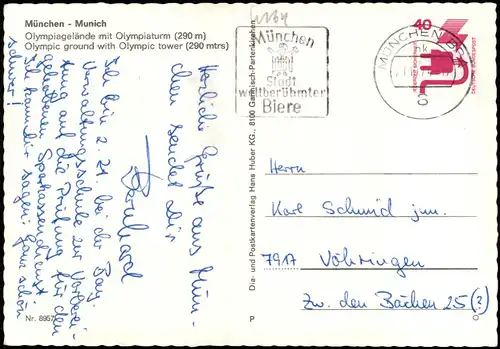 München - Munich
Olympiagelände mit Olympiaturm (290 m)
Olympic ground with Olympic tower (290 mtrs)
Herzliche Grüße aus Mün-
chen sendet Dir
Bernhard
Ich bin z. Zt. bei der Bay.
Verwaltungsschule zur Vorberei-
tung auf die Prüfung für den
gehobenen Sparkassendienst.
Ich kann dir sagen: Ganz schön
schwer!
Nr. 8957
Dia- und Postkartenverlag Hans Huber KG., 8100 Garmisch-Partenkirchen
P
München
Stadt
weltberühmter
Biere
MÜNCHEN
40
Herrn
Karl Schmid jun.
7917 Vöhringen
Zw. den Bächen 25 (?)